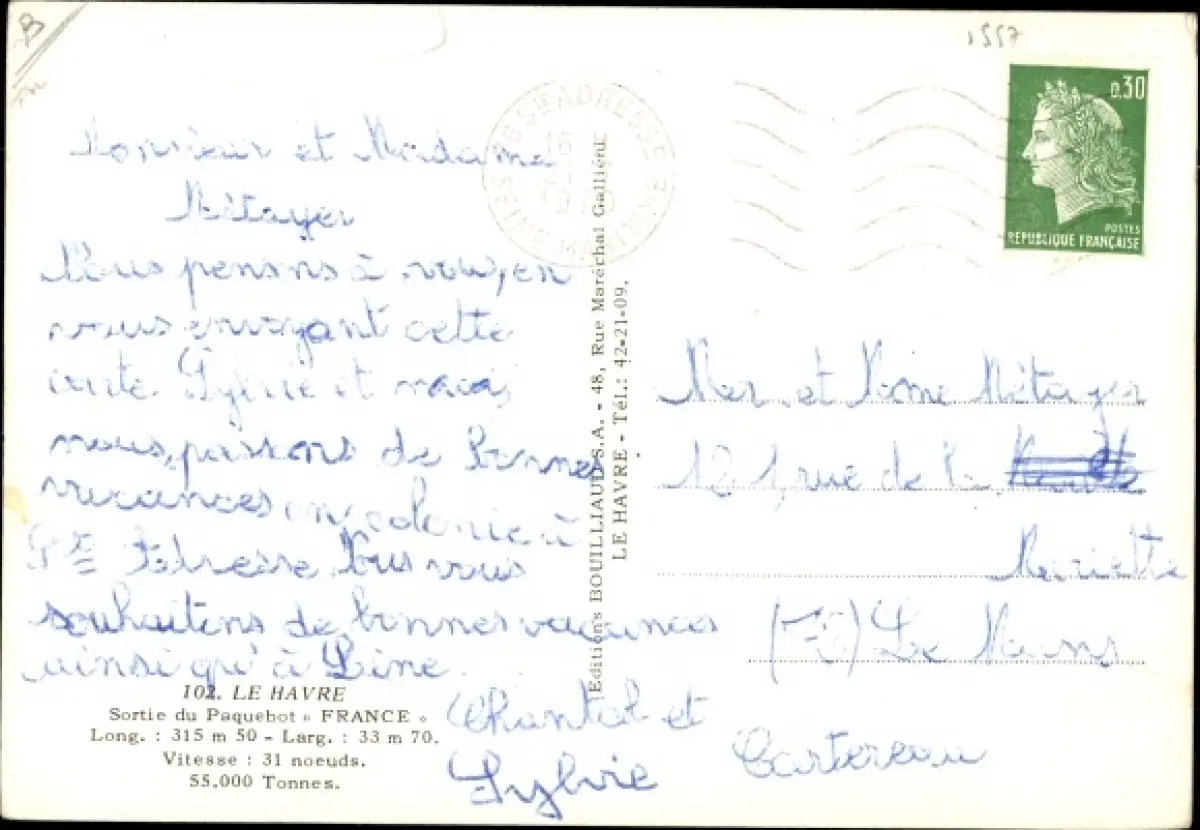 B
1557
0.30
POSTES
REPUBLIQUE FRANÇAISE
STE ADRESSE
SEINE-MARITIME
Monsieur et Madame
Métayer
Nous pensons à vous, en
vous envoyant cette
carte. Sylvie et moi,
nous, passons de bonnes
vacances en colonie à
Ste Adresse. Nous vous
souhaitons de bonnes vacances
ainsi qu'à Line.
Chantal et
Sylvie Cartereau
102. LE HAVRE
Sortie du Paquebot « FRANCE »
Long. : 315 m 50 - Larg. : 33 m 70.
Vitesse : 31 noeuds.
55.000 Tonnes.
Editions BOUILLIAUD S.A. - 48, Rue Maréchal Galliéni
LE HAVRE - Tél.: 42-21-09.
Mer. et Meme Métayer
121, rue de la
Mariette
(72) Le Mans